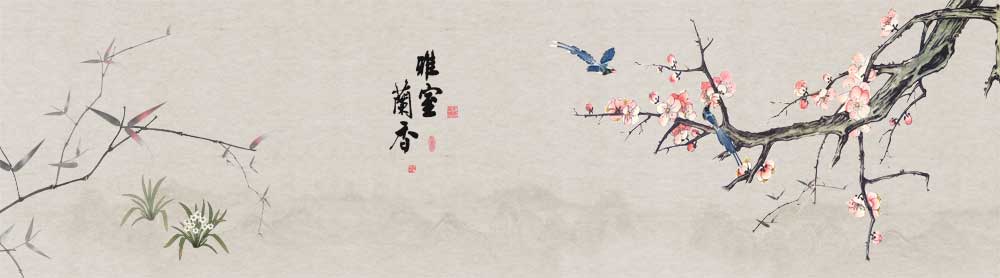 雅室
蘭香